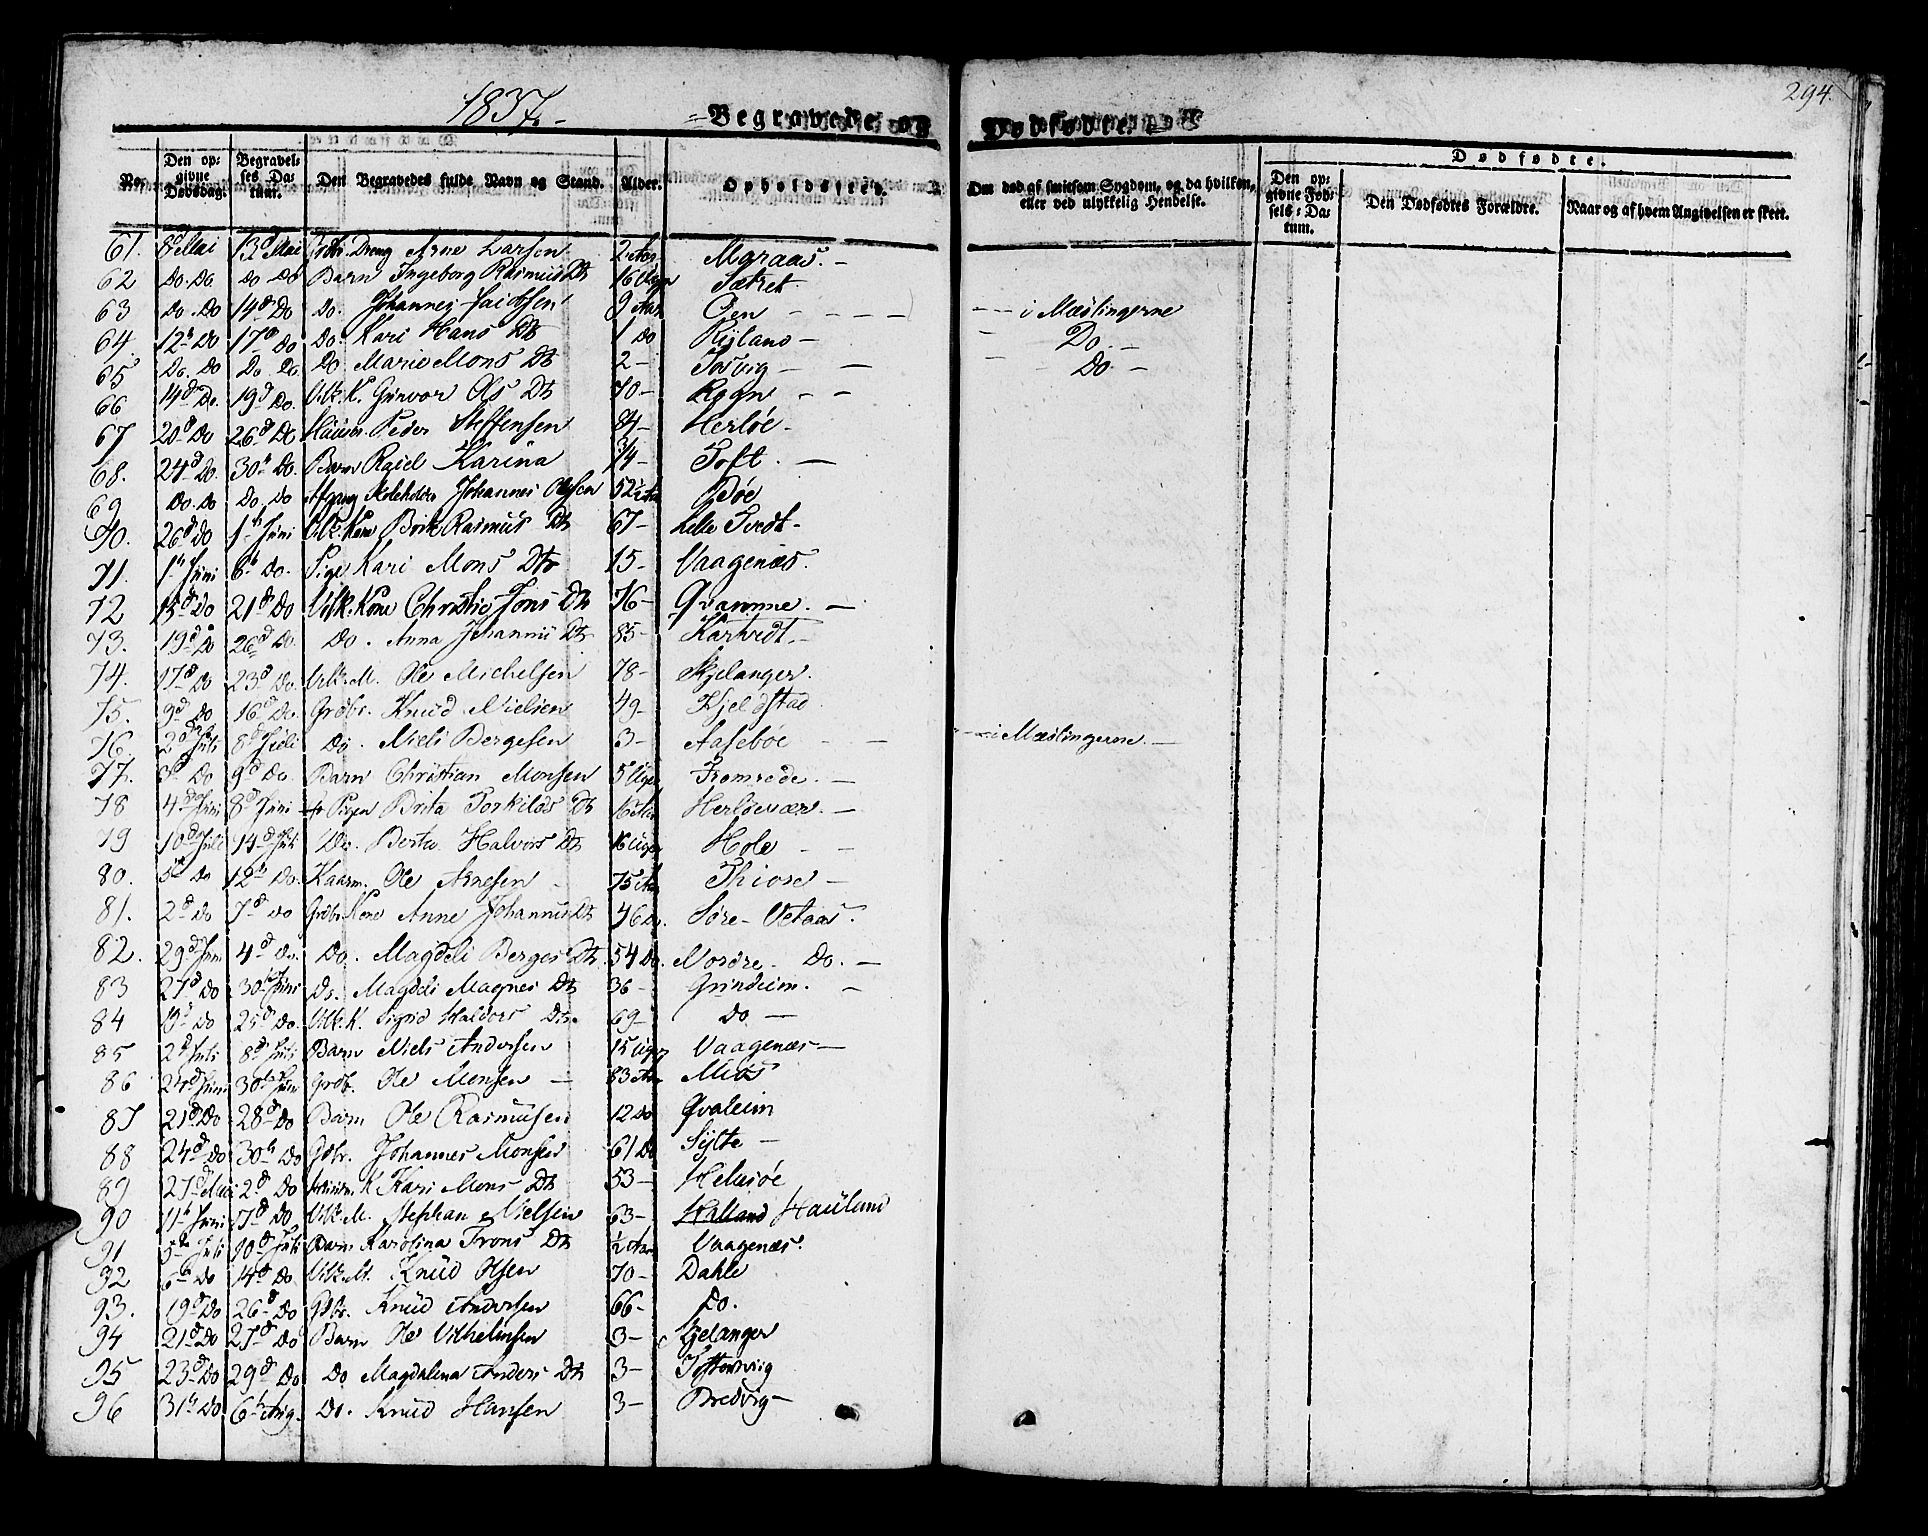 1837.
Begravede og Dødfødte.
294.
No. Den opgivne Dødsdag. Begravelses Datum. Den Begravedes fulde Navn og Stand. Alder. Opholdssted. Om død af smitsom Sygdom, og da hvilken, eller ved ulykkelig Hendelse. Dødfødte. Den opgivne Fødsels-Datum. Den Dødfødtes Forældre. Naar og af hvem Angivelsen er skeet.
61. 8d Mai 13d Mai Dreng Arne Larsen 2 Aar Mgraas.
62 Do. Do Do Do Barn Ingeborg Rasmus Dtr 16 Uger Sætret
63 Do. Do 14d Do Do. Johannes Jacobsen 9 Aar Øen i Mæslingerne
64. 12d Do 17d Do Do Kari Hans Dtr 1 Do Ryland Do.
65 Do. Do Do. Do. Do Marie Mons Dtr 2 Tosvig Do
66 14d Do. 19d Do. Vilk. K. Gunvor Ols Dtr 70 Rogn
67 20d Do 26d Do Peder Steffensen 84 Herløe
68. 24d Do. 30d Do. Barn Karina 3/4 Toft
69 Do. Do Do. Do Johannes Olsen 52½ Aar Bøe
70. 26d Do 1 Juni Vilk. Kone Brite Rasmus Dtr 67 Lille Tvedt
71. 1 Juni 6 Do. Pige Kari Mons Dtr 15 Vaagenæs.
72 15d Do 21d Do Vilk. Kone Christie Jons Dtr 76 Qvamme.
73. 19d Do 26d Do. Do. Anna Johannis Dtr 85 Kartvedt.
74. 17d Do 23d Do. Vilk. M. Ole Michelsen 78 Skjelanger.
75. 9d Do 16d Do. Grdbr. Knud Nielsen 49 Kjeldstad
76. 2d Juli 8d Juli Do. Niels Bergesen 3 Aasebøe i Mæslingerne.
77. 3d Do 9d Do. Barn Christian Monsen 5 Uger Fromrede.
78 4d Juni 8d Juni Pigen Brita Torkilds Dtr 16 Aar Herløevær.
79 10d Juli 14d Juli Do. Berta Halvors Dtr 16 Uger Hole
80. 5 Do 12 Do. Kaarm. Ole Arnesen 75 Aar Thiore
81. 2d Do 7d Do Grdbr. Kone Anne Johannis Dtr 46 Do. Søre Vetaas.
82. 29d Juni 4d Do. Do. Magdeli Berges Dtr. 54 Do. Nordre Do.
83 27d Do 30 Juni Do. Magdeli Magnes Dtr 36 Grindeim.
84 19d Do 25d Do. Vilk. K. Sigrid Haldors Dtr. 69 Do
85 2d Juli 8d Juli Barn Niels Andersen 15 Uger Vaagenæs
86 24d Juni 30 Juni Grdb. Ole Monsen 83 Aar Mias
87 21d Do 28d Do Barn Ole Rasmusen 12 Do Qvaleim
88 24d Do 30 Do Gdbr. Johannes Monsen 61 Do Sylte
89 27d Mai 2d Do K. Kari Mons Dtr 53 Helusøe
90 11 Juni 17d Do Vilk. M. Stephan Nielsen 63 Halland Haulund
91 5 Juli 10d Juli Barn Karolina Trons Dtr ½ Aar Vaagenæs.
92 6 Do 14d Do. Vilk. M. Knud Olsen 70 Dahle
93. 19d Do 26d Do Gdbr. Knud Andersen 66 Do.
94 21d Do 27d Do Barn Ole Vilhelmsen 3 Skjelanger
95 23d Do 29d Do Do Magdalena Anders Dtr 3 Toftevig
96 31 Do 6 Aug. Do. Knud Hansen 3 Bredvig